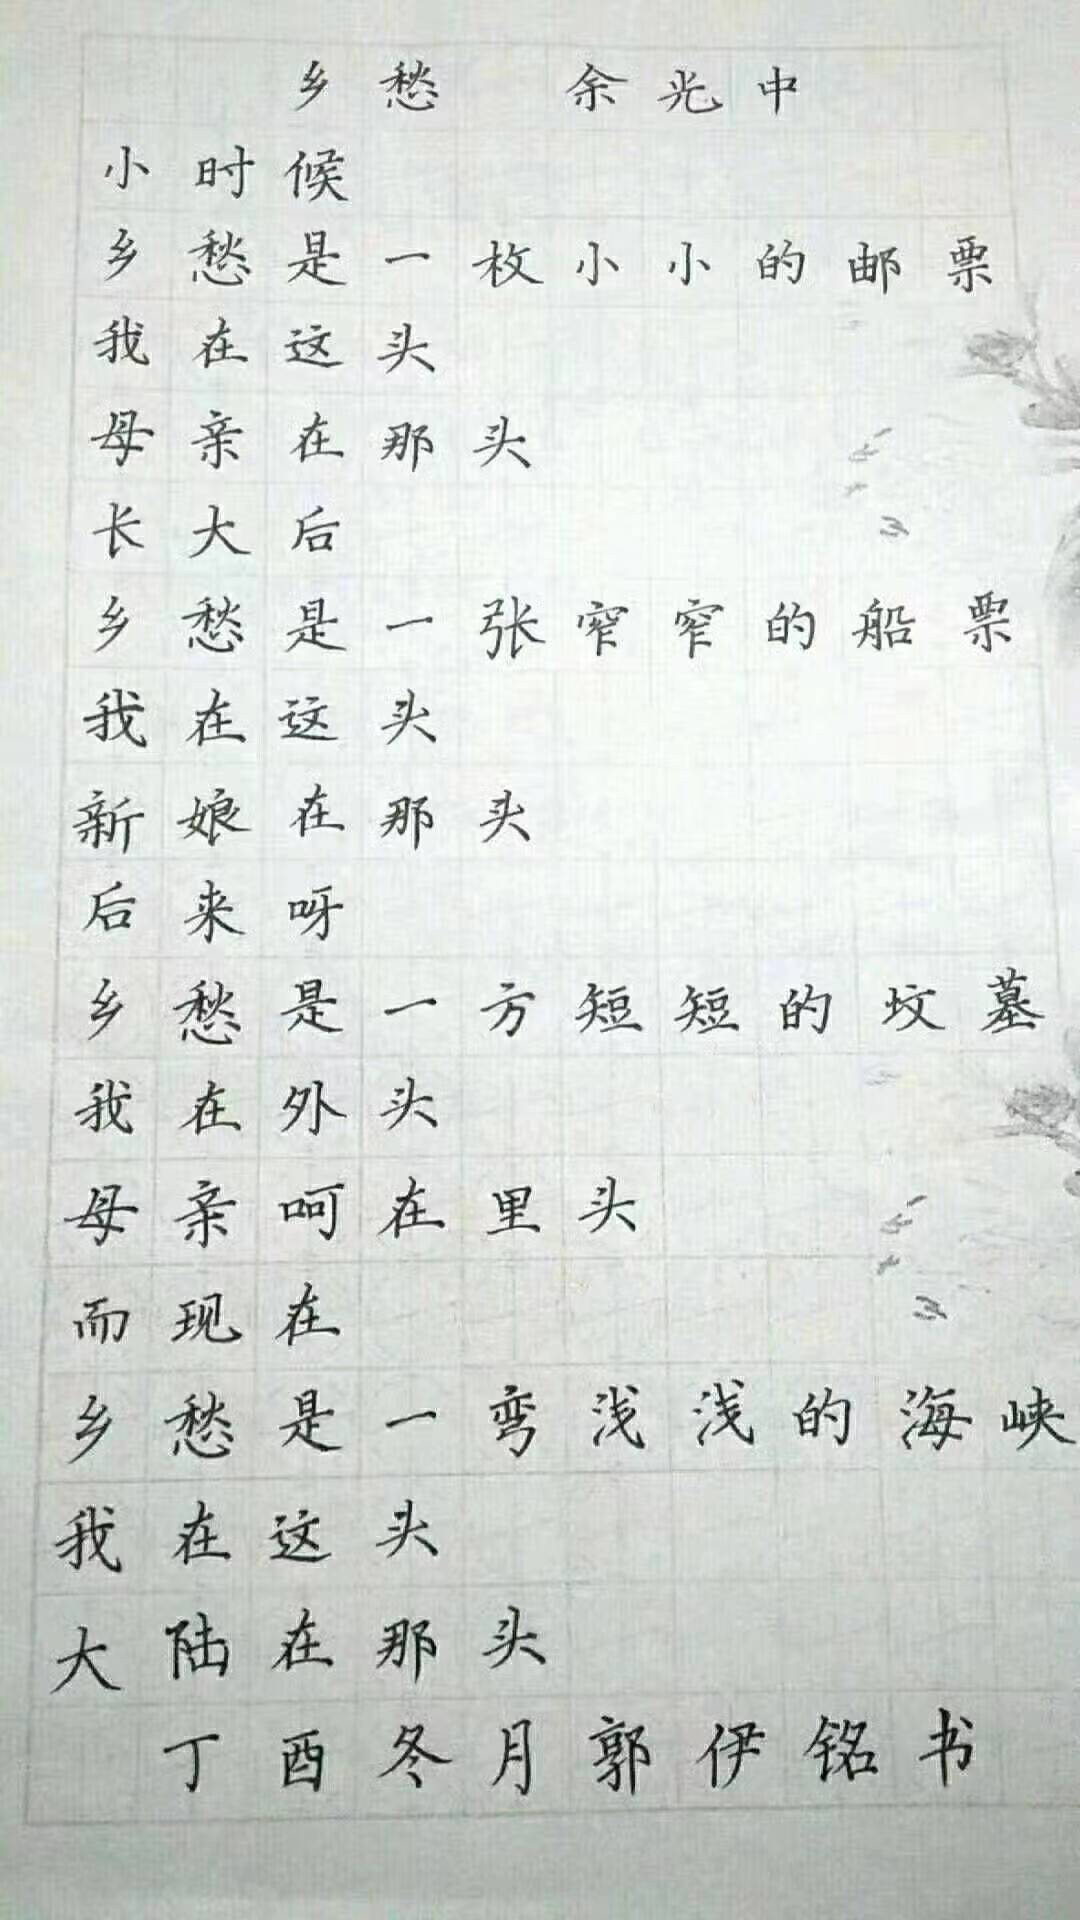 乡愁 余光中
小时候
乡愁是一枚小小的邮票
我在这头
母亲在那头
长大后
乡愁是一张窄窄的船票
我在这头
新娘在那头
后来呀
乡愁是一方短短的坟墓
我在外头
母亲呵在里头
而现在
乡愁是一弯浅浅的海峡
我在这头
大陆在那头
丁酉冬月郭伊铭书